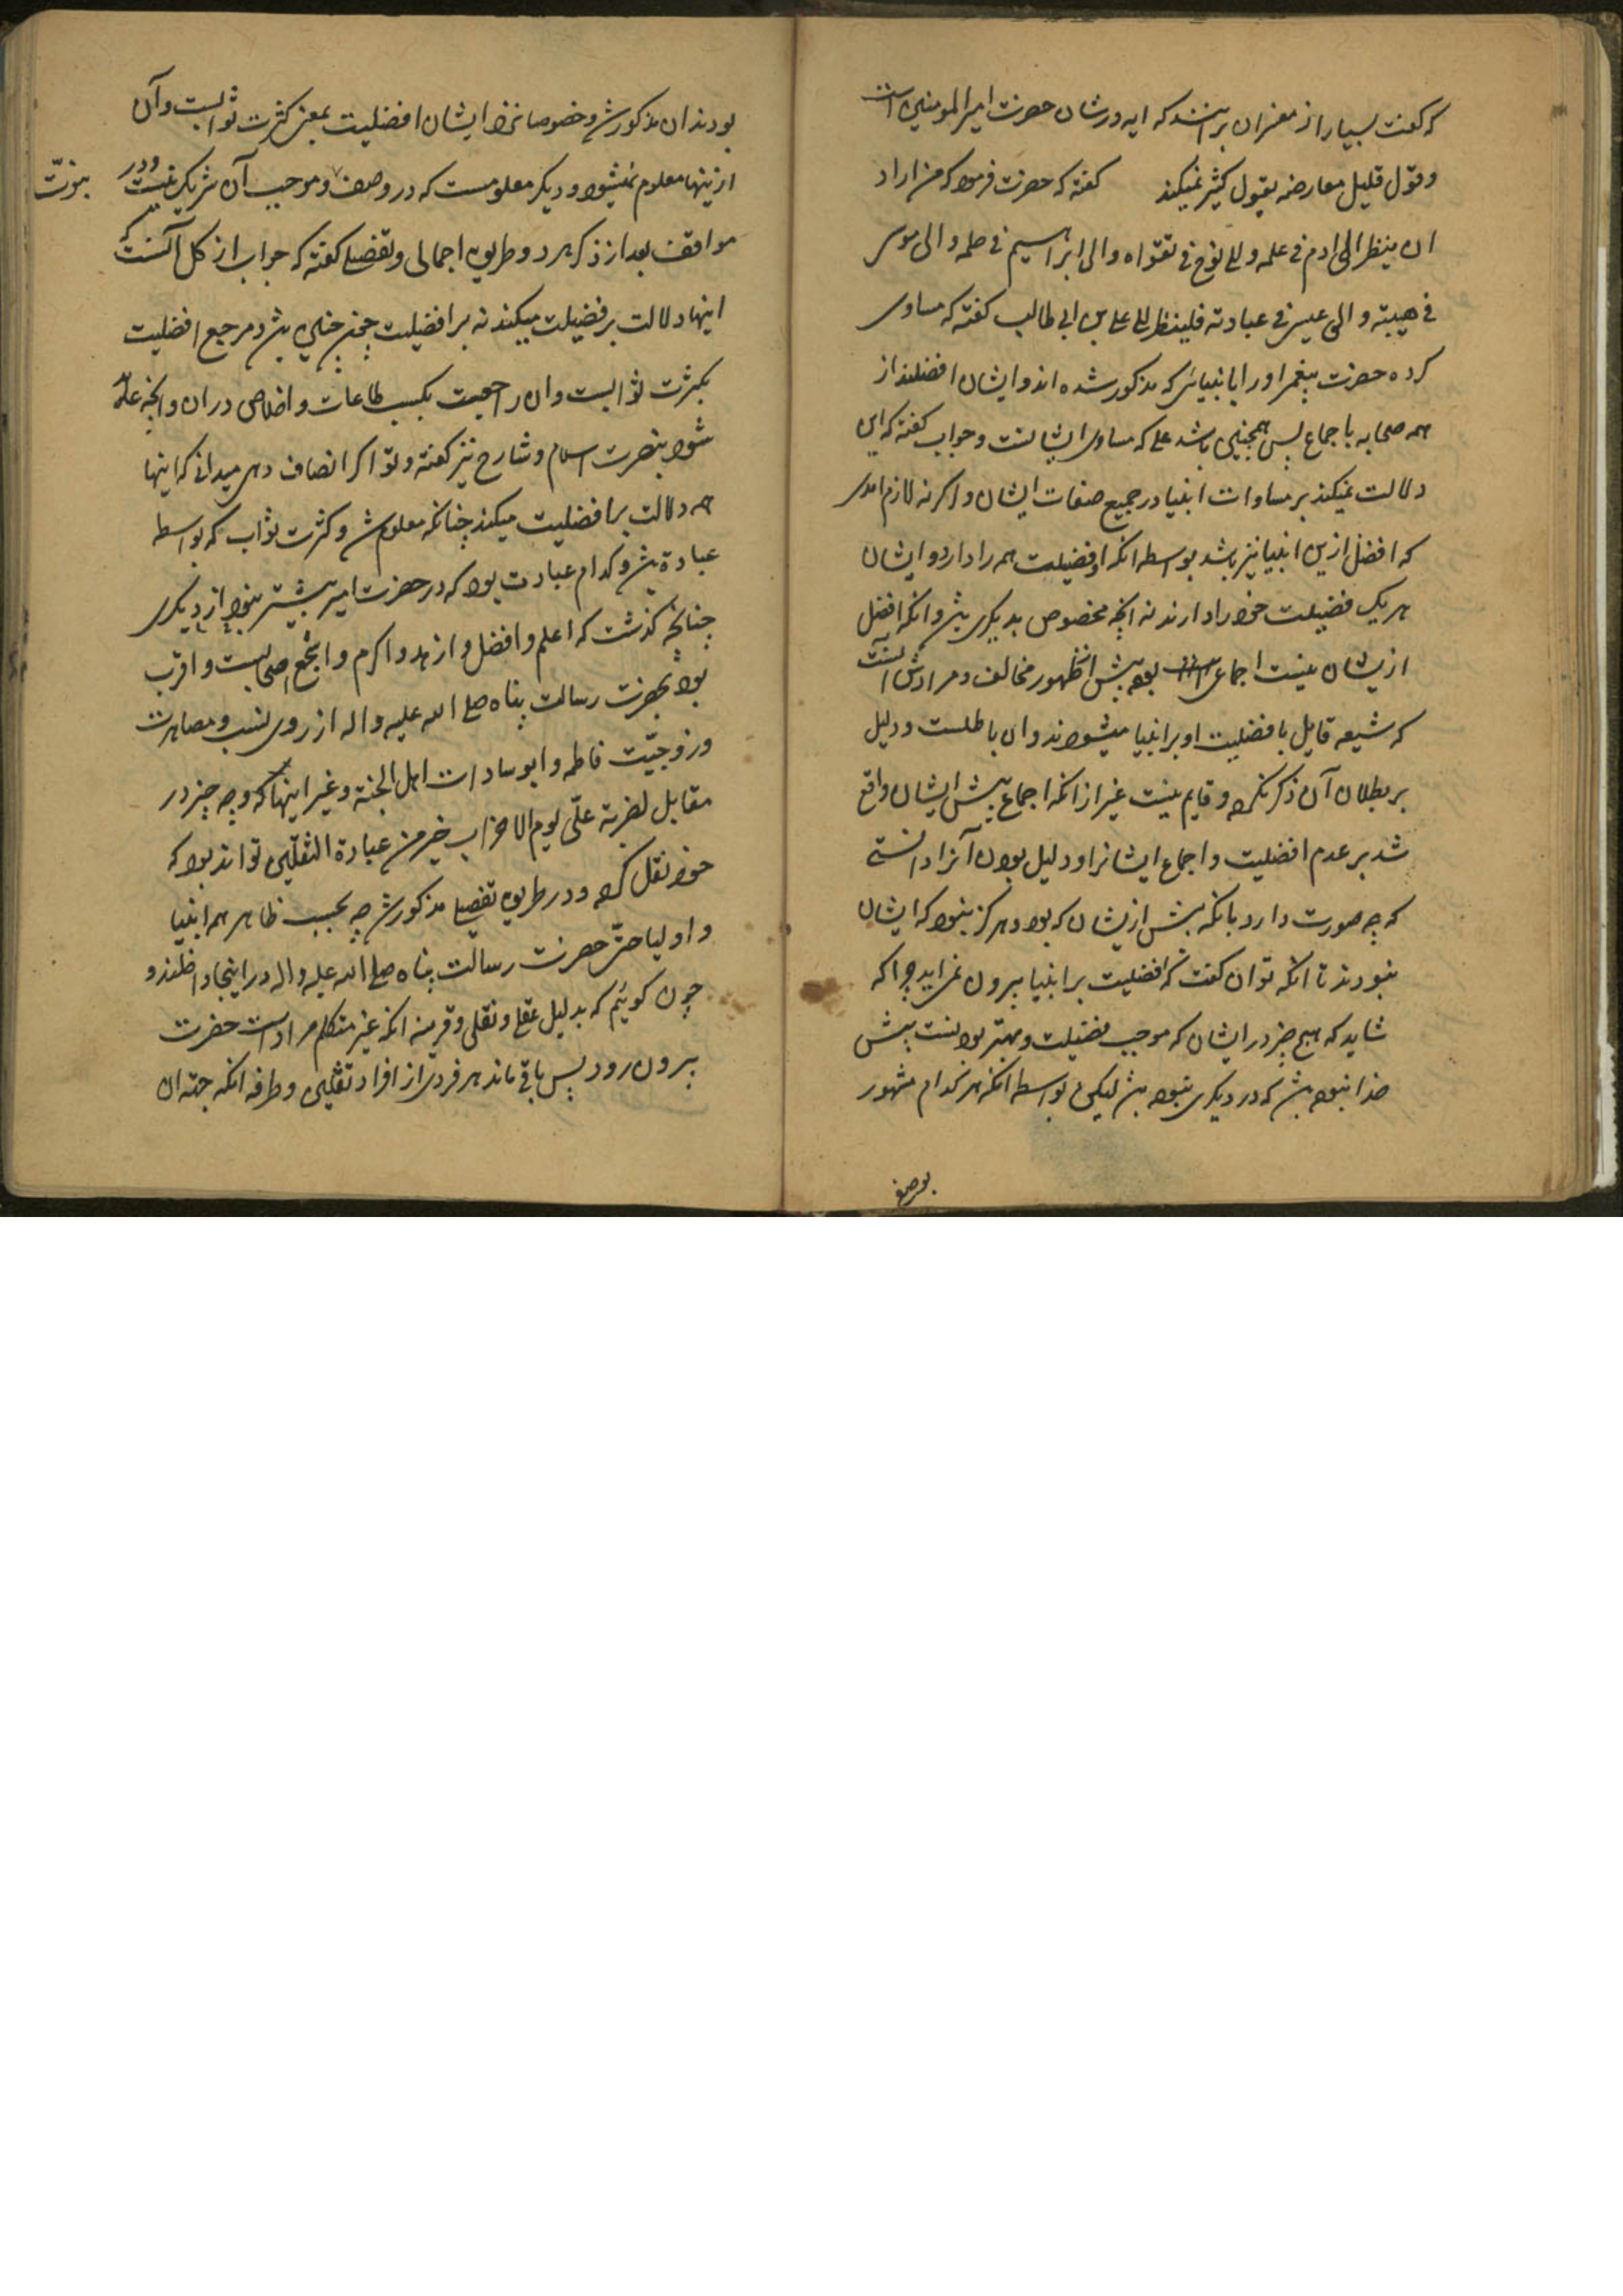 که گفت بسیار از مفسران برانند که ایه در شان حضرت امیر المومنین است
وقول قلیل معارضه بقول کثیر نمیکند گفته که حضرت فرموده که من اراد
ان ینظر الی ادم فی علمه والی نوح فی تقواه والی ابراهیم فی حلمه والی موسی
فی هیبته والی عیسی فی عبادته فلینظر الی علی بن ابی طالب گفته که مساوی
کرده حضرت پیغمبر اورا بانبیائی که مذکور شده اند وایشان افضلند از
همه صحابه باجماع پس همچنین باشد علی که مساوی ایشانست وجواب گفته که این
دلالت نمیکند بر مساوات انبیا در جمیع صفات ایشان واگر نه لازم امدی
که افضل ازین انبیا نیز باشد بواسطه انکه او فضیلت همه را دارد وایشان
هر یک فضیلت خود را دارند نه انچه مخصوص بدیگری باشد وانکه افضل
ازیشان نیست اجماعی بوده پیش از ظهور مخالف ومرادش انست
که شیعه قایل بافضلیت او بر انبیا میشوند وان باطلست ودلیل
بر بطلان آن ذکر نکرده وقایم نیست غیر از انکه اجماع پیش ایشان واقع
شد بر عدم افضلیت واجماع ایشانرا ودلیل بودن آنرا دانستی
که چه صورت دارد بانکه پیش ازیشان که بود وهرگز نبود که ایشان
نبودند تا انکه توان گفت که افضلیت بر انبیا بیرون نمی اید چرا که
شاید که هیچ چیز در ایشان که موجب فضیلت وبهتر بودنست پیش
خدا نبوده باشد که در دیگری نبوده باشد لیکن بواسطه انکه هر کدام مشهور
بوصف
بودند ان مذکور شد وخصوصا نزد ایشان افضلیت بمعنی کثرت ثوابست وآن
ازینها معلوم نمیشود ودیگر معلومست که در وصف وموجب آن شریک نیست ودر
نبوت
مواقف بعد از ذکر هر دو طریق اجمالی وتفصیلی گفته که جواب از کل آنست که
اینها دلالت بر فضیلت میکند نه بر افضلیت چنین باشد ومرجع افضلیت
بکثرت ثوابست وان راجعست بکسب طاعات واخلاص دران وانچه عاید
شود بنصرت اسلام وشارح نیز گفته وتو اگر انصاف دهی میدانی که اینها
همه دلالت بر افضلیت میکند چنانکه معلوم شد وکثرت ثواب که بواسطه
عبادة باشد وکدام عبادت بود که در حضرت امیر بیشتر نبود از دیگری
چنانچه گذشت که اعلم وافضل وازهد واکرم واشجع اصحابست واقرب
بود بحضرت رسالت پناه صلی الله علیه واله از روی نسب ومصاهرت
وزوجیّت فاطمه وابو سادات اهل الجنة وغیر اینها که وچه چیز در
مقابل لضربة علیّ یوم الاحزاب خیر من عبادة الثقلین تواند بود که
خود نقل کرده ودر طریق تفصیلی مذکور شد چه بحسب ظاهر همه انبیا
واولیا حتی حضرت رسالت پناه صلی الله علیه واله در اینجا داخلند و
چون گوئیم که بدلیل عقلی ونقلی وقرینه انکه غیر متکلم مرادست حضرت
بیرون رود پس باقی ماند هر فردی از افراد ثقلین وطرفه انکه جته ان